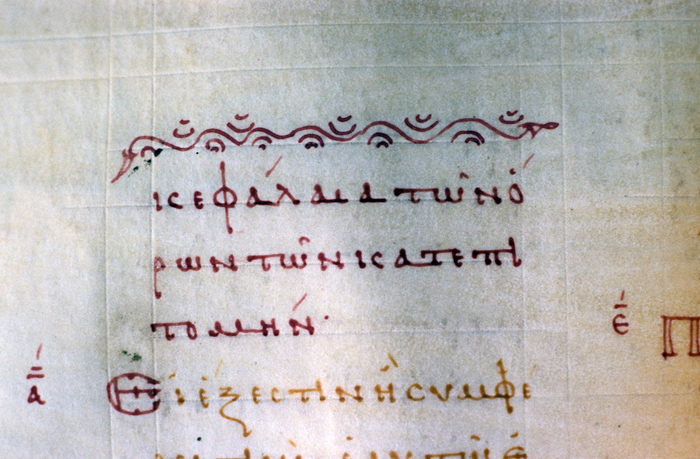 κεφάλαια τῶν ὅ
ρων τῶν κατεπι
τομήν·
ε̄ Π
ᾱ Εἰ ἔξεστιν ἢ συμφέ